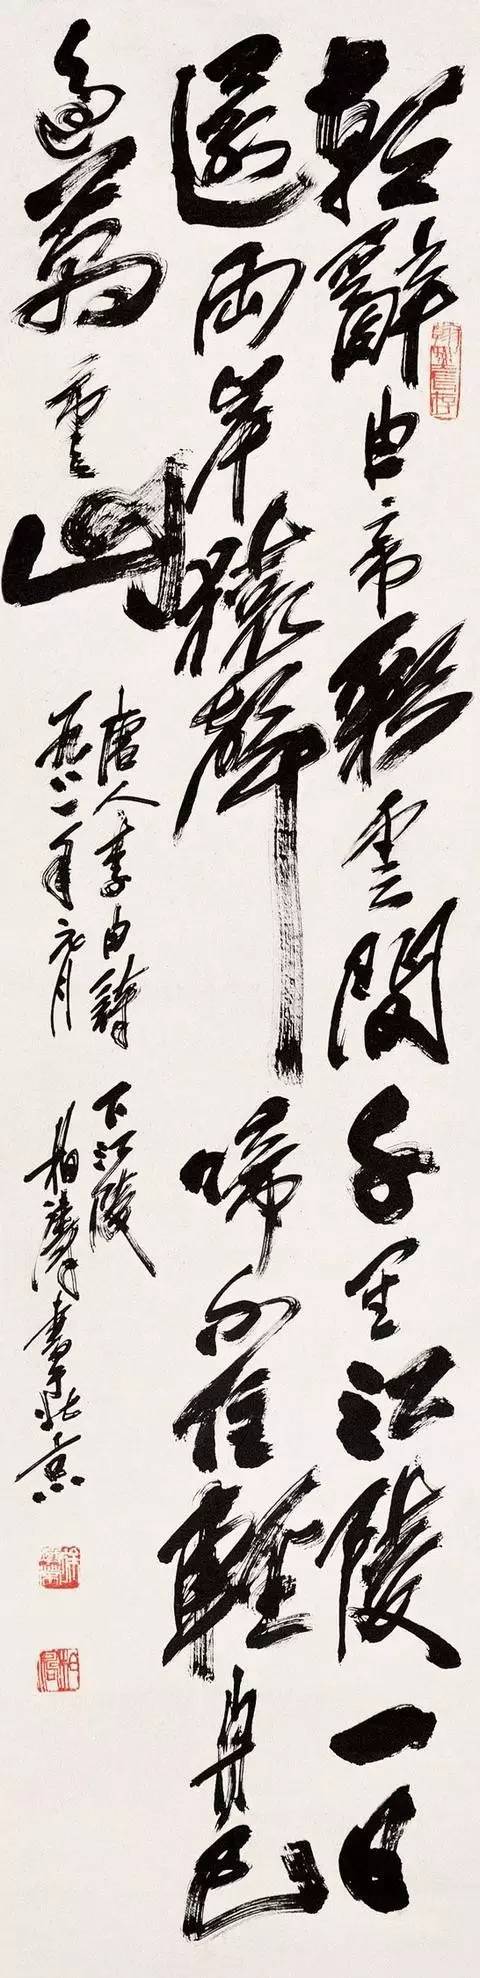 朝辭白帝彩雲間千里江陵一日
還兩岸猿聲啼不住輕舟已
過萬重山
唐人李白詩 下江陵
一九八一年元月 柏濤書于北京
柏濤